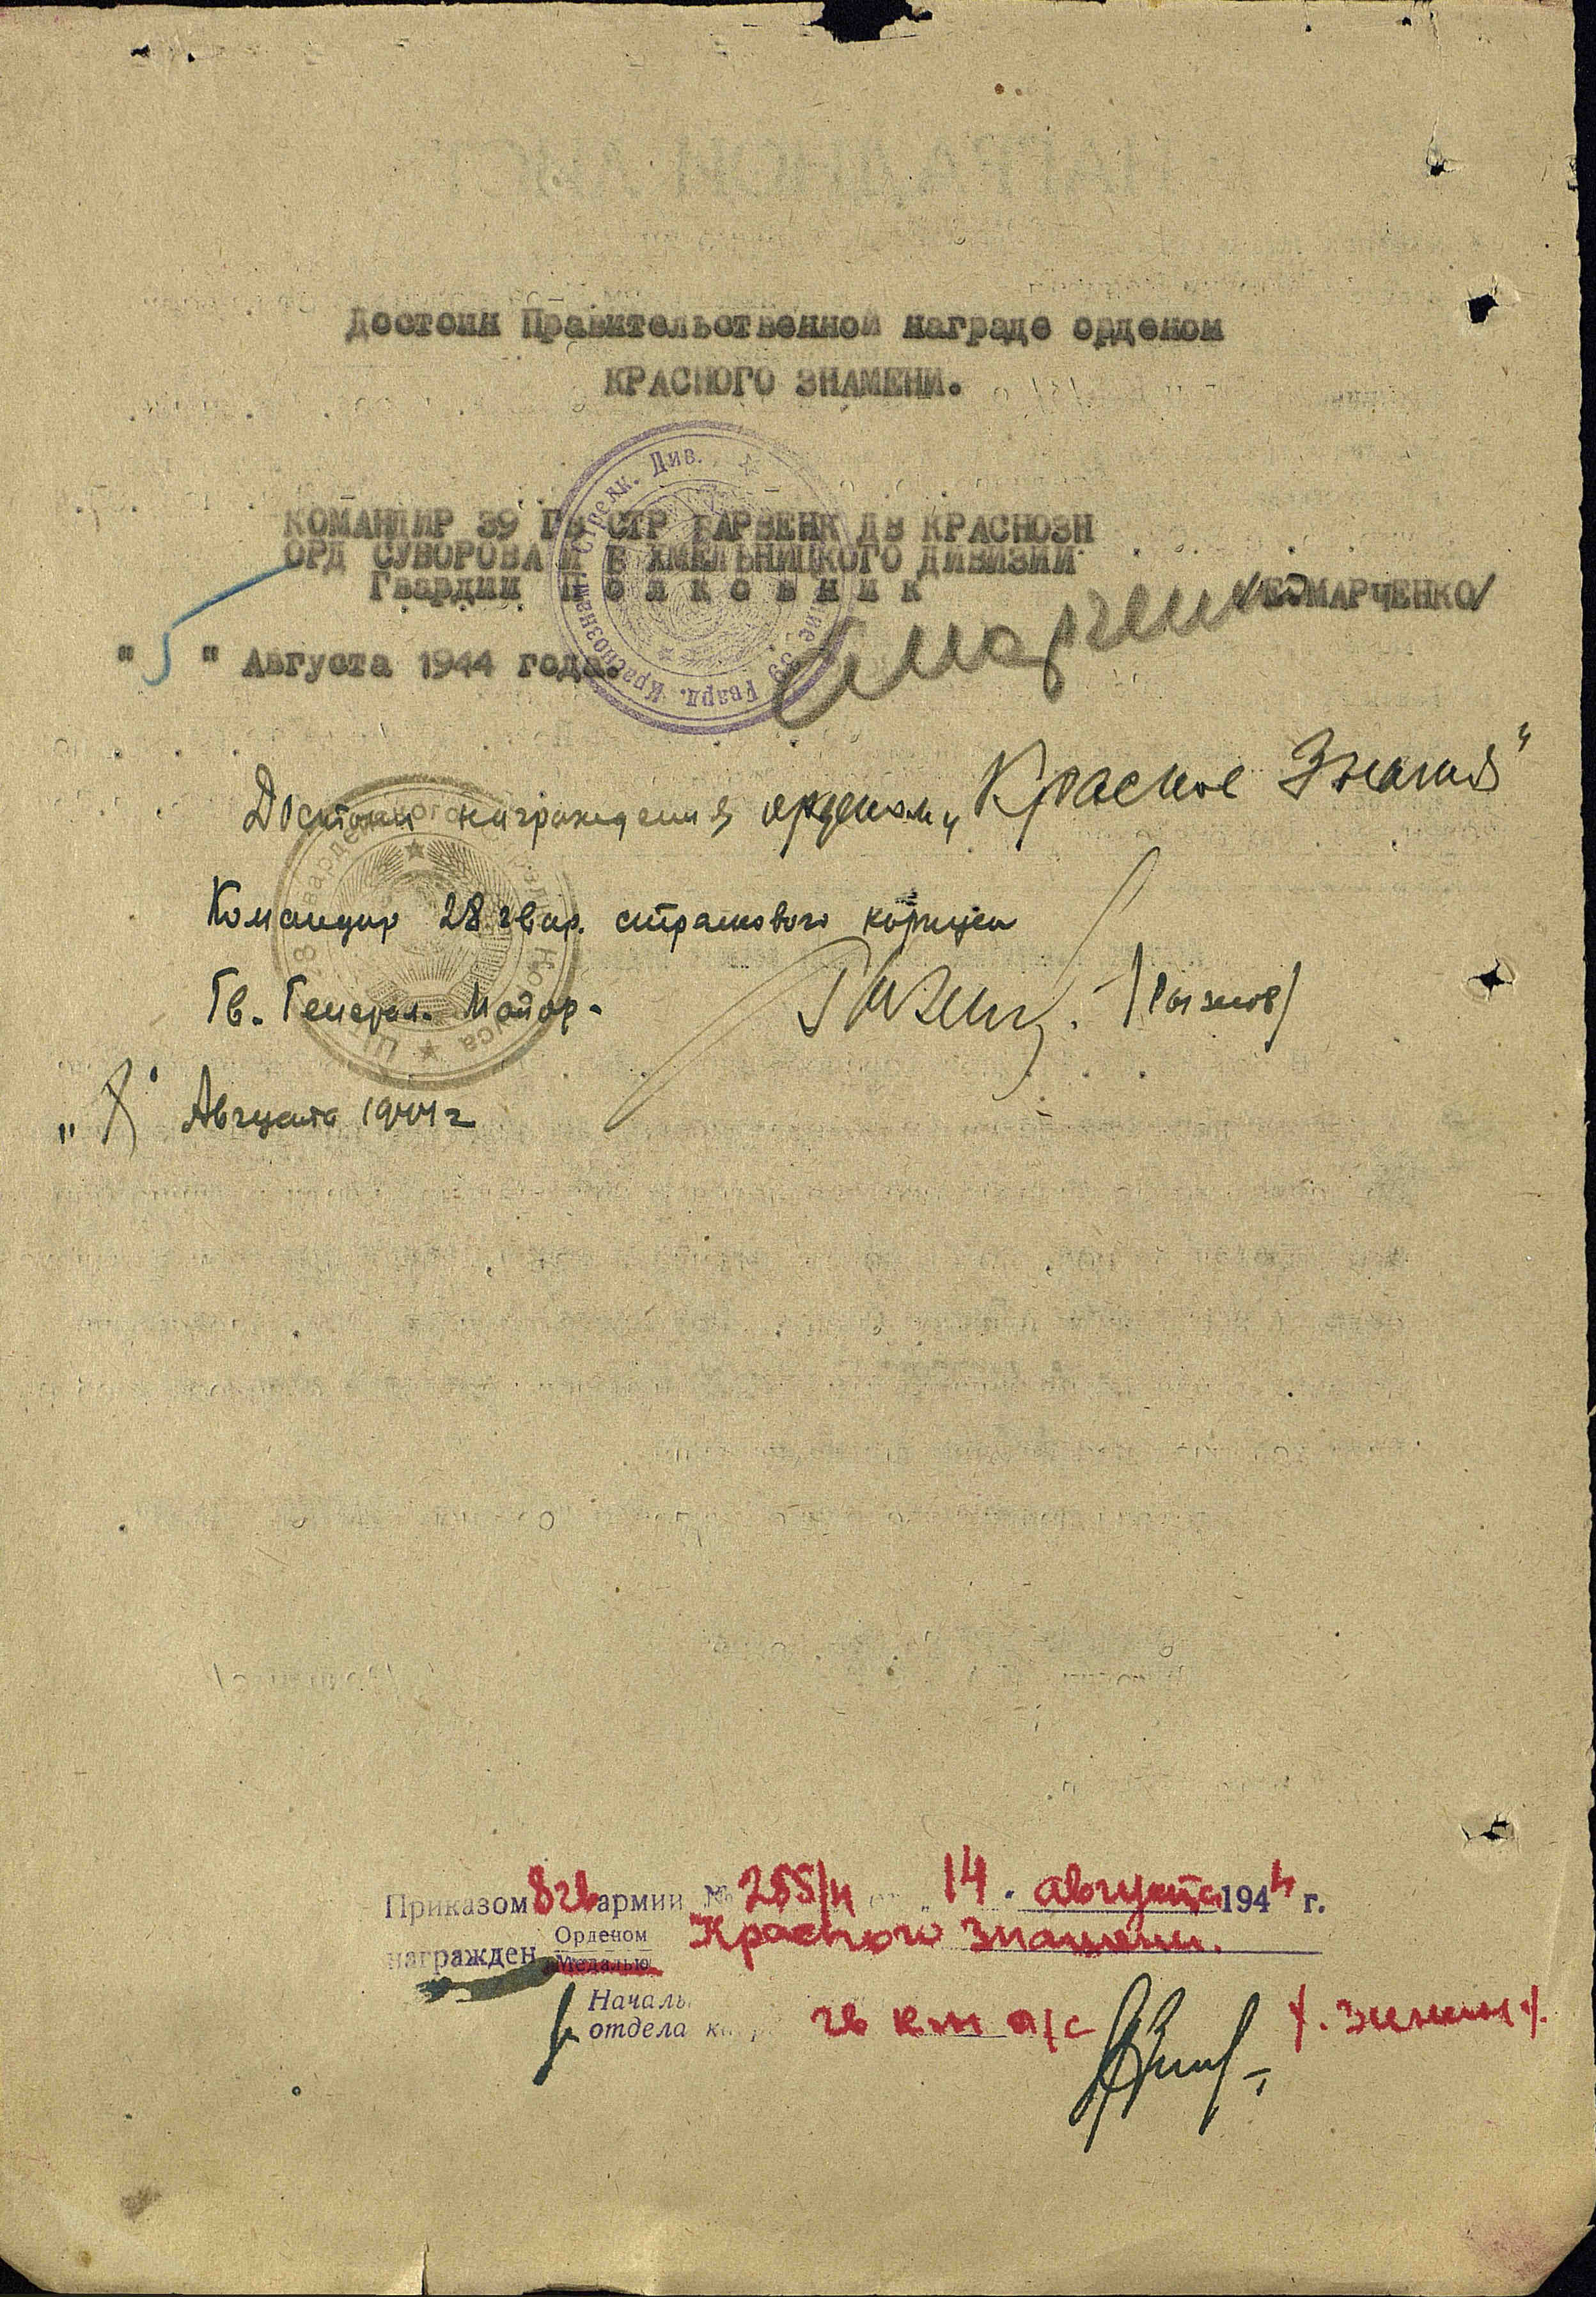 Достоин Правительственной награде орденом
КРАСНОГО ЗНАМЕНИ.
КОМАНДИР 39 ГВ СТР БАРВЕНК ДВ КРАСНОЗН
ОРД СУВОРОВА И Б ХМЕЛЬНИЦКОГО ДИВИЗИИ
Гвардии Полковник /Е. МАРЧЕНКО/
" 5 " Августа 1944 года.
Достоин награждения орденом „Красное Знамя"
Командир 28 гвар. стрелкового корпуса
Гв. Генерал. Майор - /Рыжов/
„8" Августа 1944 г
Приказом 8 гв армии № 255/н от „ 14. августа 1944 г.
награжден Орденом Красного знамени.
Медалью
Началь
отдела кадр гв к-н а/с /. Зинин /.